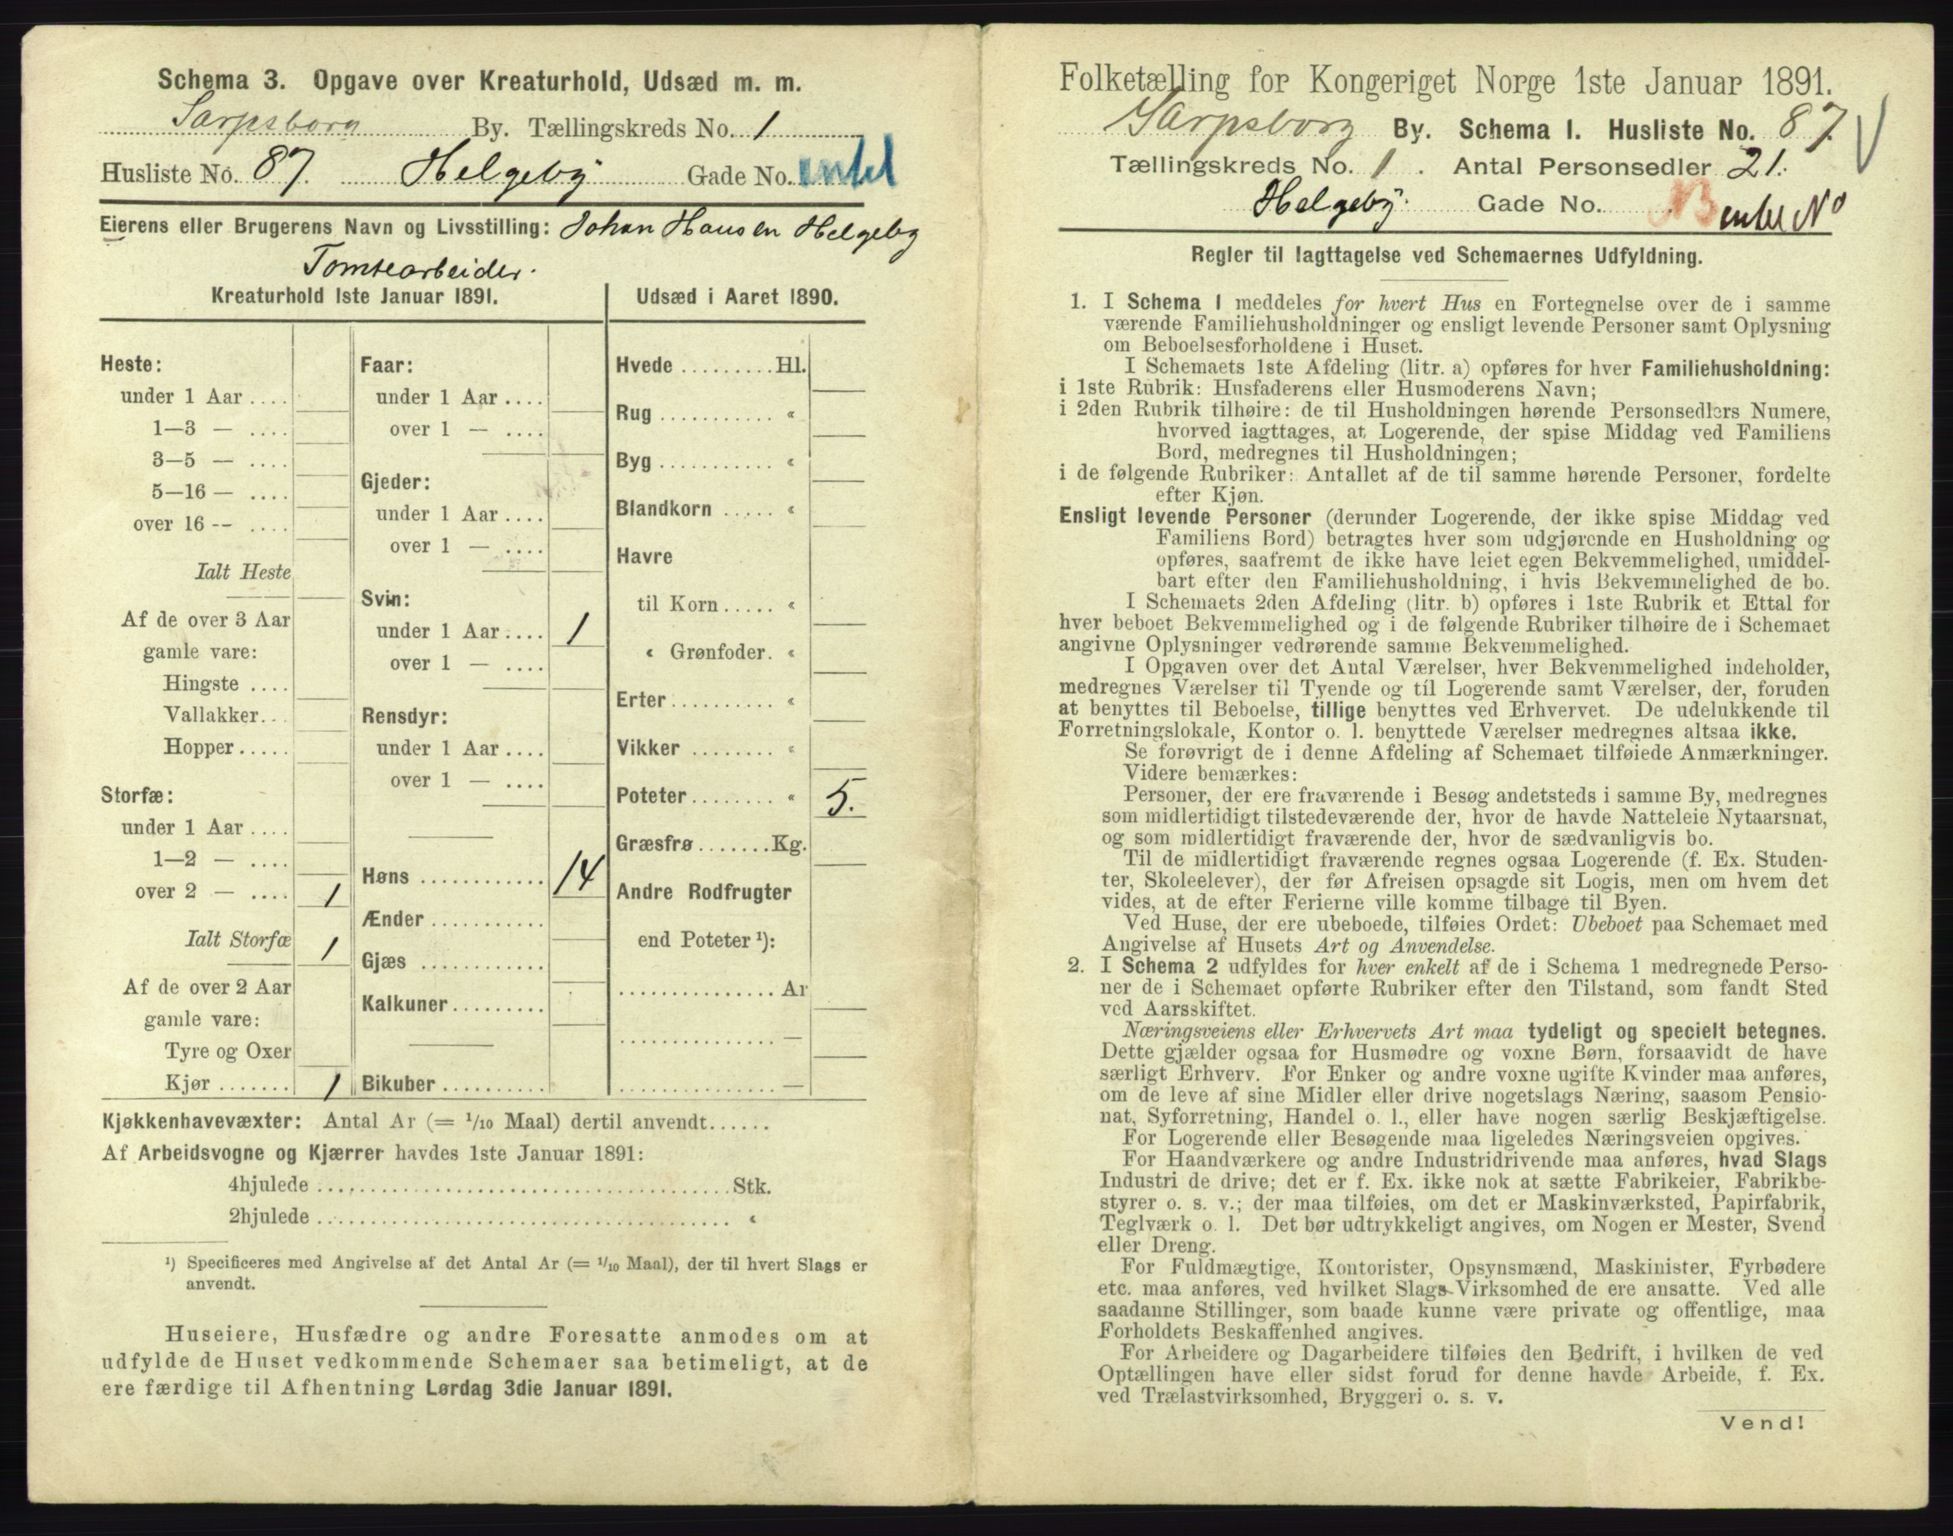 Schema 3. Opgave over Kreaturhold, Udsæd m. m.
Sarpsborg By. Tællingskreds No. 1
Husliste No. 87. Helgeby Gade No. entel
Eierens eller Brugerens Navn og Livsstilling: Johan Hansen Helgeby
Tomtearbeider.
Kreaturhold 1ste Januar 1891.
Heste:
under 1 Aar ....
1—3 — ....
3—5 — ....
5—16 — ....
over 16 -- ....
Ialt Heste
Af de over 3 Aar
gamle vare:
Hingste ....
Vallakker...
Hopper.....
Storfæ:
under 1 Aar ....
1—2 — ....
over 2 — .... 1
Ialt Storfæ 1
Af de over 2 Aar
gamle vare:
Tyre og Oxer
Kjør ....... 1
Faar:
under 1 Aar ....
over 1 — ....
Gjeder:
under 1 Aar ....
over 1 — ....
Svin:
under 1 Aar .... 1
over 1 — ....
Rensdyr:
under 1 Aar ....
over 1 — ....
Høns ............ 14
Ænder ............
Gjæs ............
Kalkuner.........
Bikuber ..........
Udsæd i Aaret 1890.
Hvede ......... Hl.
Rug ........... «
Byg ........... «
Blandkorn ..... «
Havre
til Korn ..... «
« Grønfoder. «
Erter.......... «
Vikker ........ «
Poteter........ « 5.
Græsfrø ....... Kg.
Andre Rodfrugter
end Poteter ¹):
............... Ar
............... —
............... —
Kjøkkenhavevæxter: Antal Ar (= 1/10 Maal) dertil anvendt......
Af Arbeidsvogne og Kjærrer havdes 1ste Januar 1891:
4hjulede ........................................ Stk.
2hjulede ........................................ «
¹) Specificeres med Angivelse af det Antal Ar (= 1/10 Maal), der til hvert Slags er
anvendt.
Huseiere, Husfædre og andre Foresatte anmodes om at
udfylde de Huset vedkommende Schemaer saa betimeligt, at de
ere færdige til Afhentning Lørdag 3die Januar 1891.
Folketælling for Kongeriget Norge 1ste Januar 1891.
Sarpsborg By. Schema I. Husliste No. 87.
Tællingskreds No. 1. Antal Personsedler 21.
Helgeby. Gade No. entel No
Regler til Iagttagelse ved Schemaernes Udfyldning.
1. I Schema 1 meddeles for hvert Hus en Fortegnelse over de i samme
værende Familiehusholdninger og ensligt levende Personer samt Oplysning
om Beboelsesforholdene i Huset.
I Schemaets 1ste Afdeling (litr. a) opføres for hver Familiehusholdning:
i 1ste Rubrik: Husfaderens eller Husmoderens Navn;
i 2den Rubrik tilhøire: de til Husholdningen hørende Personsedlers Numere,
hvorved iagttages, at Logerende, der spise Middag ved Familiens
Bord, medregnes til Husholdningen;
i de følgende Rubriker: Antallet af de til samme hørende Personer, fordelte
efter Kjøn.
Ensligt levende Personer (derunder Logerende, der ikke spise Middag ved
Familiens Bord) betragtes hver som udgjørende en Husholdning og
opføres, saafremt de ikke have leiet egen Bekvemmelighed, umiddel-
bart efter den Familiehusholdning, i hvis Bekvemmelighed de bo.
I Schemaets 2den Afdeling (litr. b) opføres i 1ste Rubrik et Ettal for
hver beboet Bekvemmelighed og i de følgende Rubriker tilhøire de i Schemaet
angivne Oplysninger vedrørende samme Bekvemmelighed.
I Opgaven over det Antal Værelser, hver Bekvemmelighed indeholder,
medregnes Værelser til Tyende og til Logerende samt Værelser, der, foruden
at benyttes til Beboelse, tillige benyttes ved Erhvervet. De udelukkende til
Forretningslokale, Kontor o. l. benyttede Værelser medregnes altsaa ikke.
Se forøvrigt de i denne Afdeling af Schemaet tilføiede Anmærkninger.
Videre bemærkes:
Personer, der ere fraværende i Besøg andetsteds i samme By, medregnes
som midlertidigt tilstedeværende der, hvor de havde Natteleie Nytaarsnat,
og som midlertidigt fraværende der, hvor de sædvanligvis bo.
Til de midlertidigt fraværende regnes ogsaa Logerende (f. Ex. Studen-
ter, Skoleelever), der før Afreisen opsagde sit Logis, men om hvem det
vides, at de efter Ferierne ville komme tilbage til Byen.
Ved Huse, der ere ubeboede, tilføies Ordet: Ubeboet paa Schemaet med
Angivelse af Husets Art og Anvendelse.
2. I Schema 2 udfyldes for hver enkelt af de i Schema 1 medregnede Perso-
ner de i Schemaet opførte Rubriker efter den Tilstand, som fandt Sted
ved Aarsskiftet.
Næringsveiens eller Erhvervets Art maa tydeligt og specielt betegnes.
Dette gjælder ogsaa for Husmødre og voxne Børn, forsaavidt de have
særligt Erhverv. For Enker og andre voxne ugifte Kvinder maa anføres,
om de leve af sine Midler eller drive nogetslags Næring, saasom Pensio-
nat, Syforretning, Handel o. l., eller have nogen særlig Beskjæftigelse.
For Logerende eller Besøgende maa ligeledes Næringsveien opgives.
For Haandværkere og andre Industridrivende maa anføres, hvad Slags
Industri de drive; det er f. Ex. ikke nok at sætte Fabrikeier, Fabrikbe-
styrer o. s. v.; der maa tilføies, om det er Maskinværksted, Papirfabrik,
Teglværk o. l. Det bør udtrykkeligt angives, om Nogen er Mester, Svend
eller Dreng.
For Fuldmægtige, Kontorister, Opsynsmænd, Maskinister, Fyrbødere
etc. maa anføres, ved hvilket Slags Virksomhed de ere ansatte. Ved alle
saadanne Stillinger, som baade kunne være private og offentlige, maa
Forholdets Beskaffenhed angives.
For Arbeidere og Dagarbeidere tilføies den Bedrift, i hvilken de ved
Optællingen have eller sidst forud for denne havde Arbeide, f. Ex.
ved Trælastvirksomhed, Bryggeri o. s. v.
Vend!